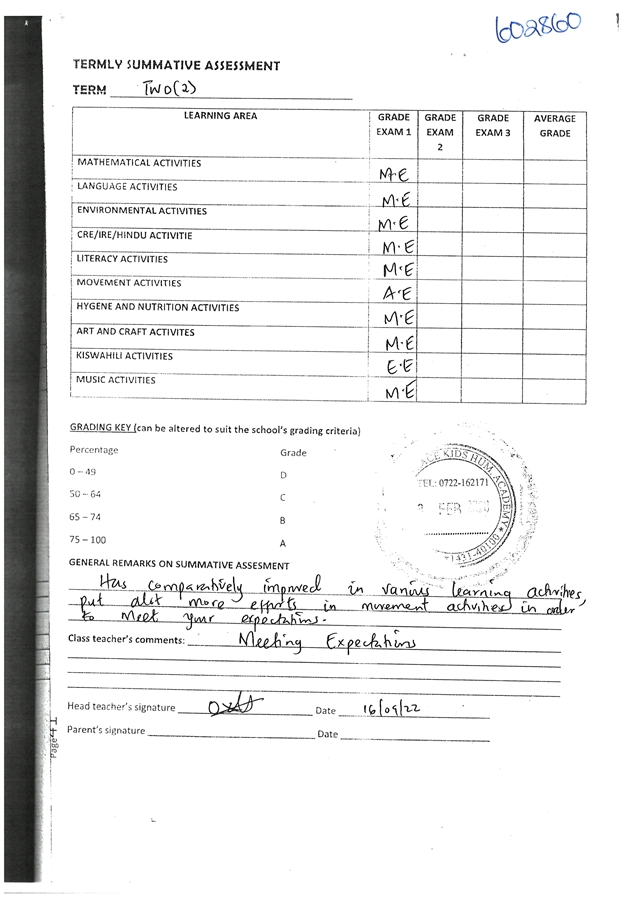 602860
TERMLY SUMMATIVE ASSESSMENT
TERM TWO(2)
LEARNING AREA GRADE EXAM 1 GRADE EXAM 2 GRADE EXAM 3 AVERAGE GRADE
MATHEMATICAL ACTIVITIES M.E
LANGUAGE ACTIVITIES M.E
ENVIRONMENTAL ACTIVITIES M.E
CRE/IRE/HINDU ACTIVITIE M.E
LITERACY ACTIVITIES M.E
MOVEMENT ACTIVITIES A.E
HYGENE AND NUTRITION ACTIVITIES M.E
ART AND CRAFT ACTIVITES M.E
KISWAHILI ACTIVITIES E.E
MUSIC ACTIVITIES M.E
GRADING KEY (can be altered to suit the school's grading criteria)
Percentage Grade
0 – 49 D
50 – 64 C
65 – 74 B
75 – 100 A
KIDS HUM. ACADEMY
TEL: 0722-162171
FEB
1431-40100
GENERAL REMARKS ON SUMMATIVE ASSESMENT
Has comparatively improved in various learning activities,
put alot more efforts in movement activities in order
to meet your expectations.
Class teacher's comments: Meeting Expectations
Head teacher's signature Date 16/09/22
Parent's signature Date
Page